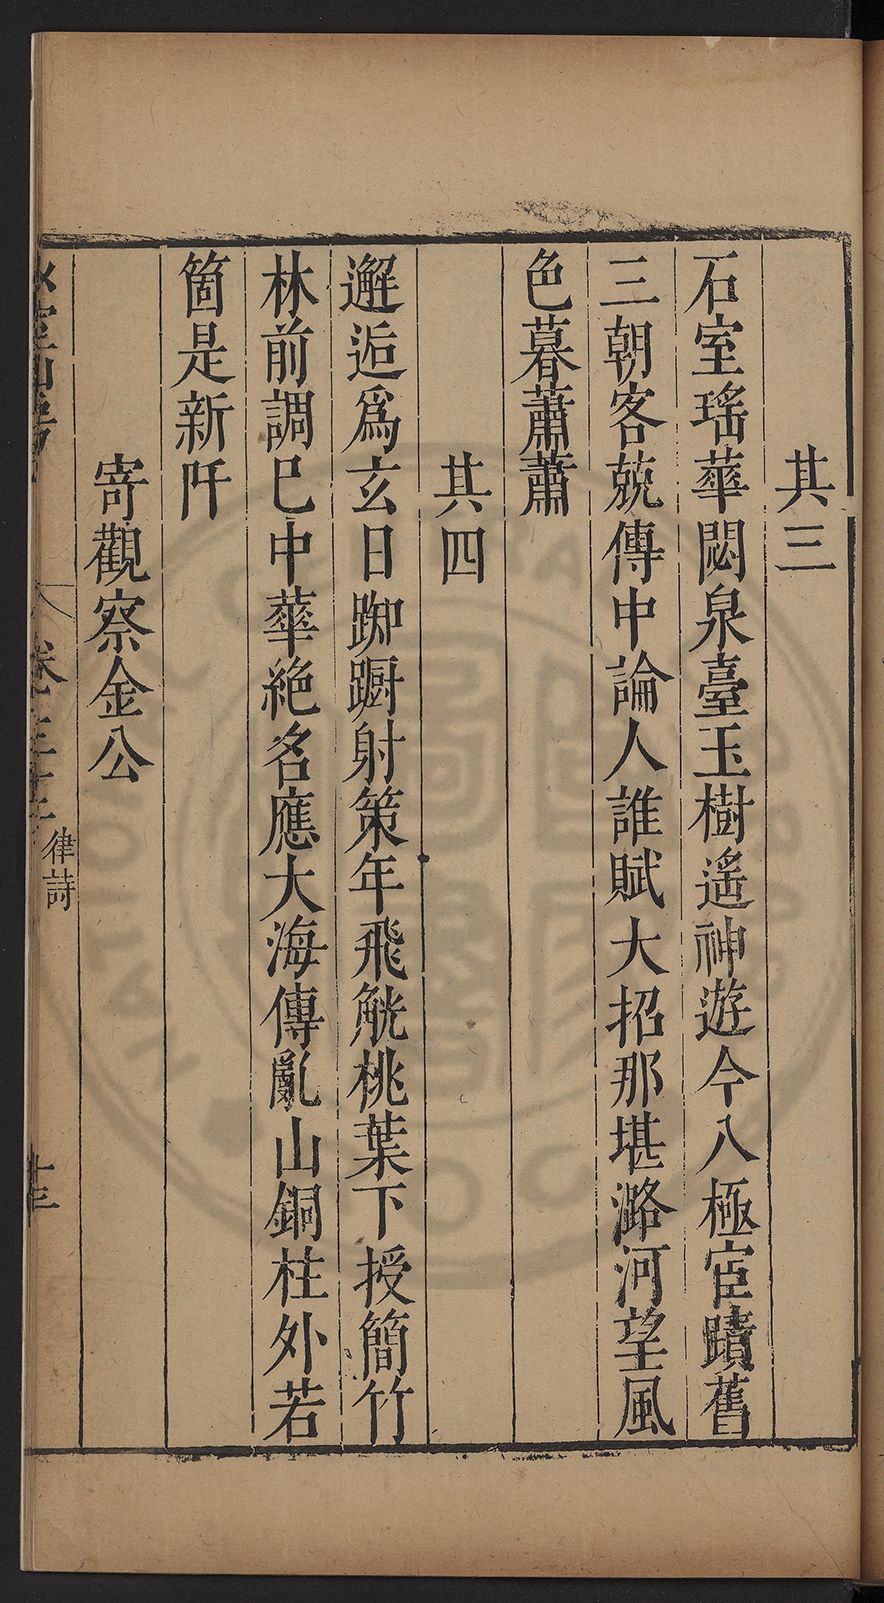 其三
石室瑤華閟泉臺玉樹遙神遊今八極宦蹟舊
三朝客兢傳中論人誰賦大招那堪潞河望風
色暮蕭蕭
其四
邂逅爲玄日踟躕射策年飛觥桃葉下授簡竹
林前調巳中華絶名應大海傳亂山銅柱外若
箇是新阡
寄觀察金公
律詩
十三